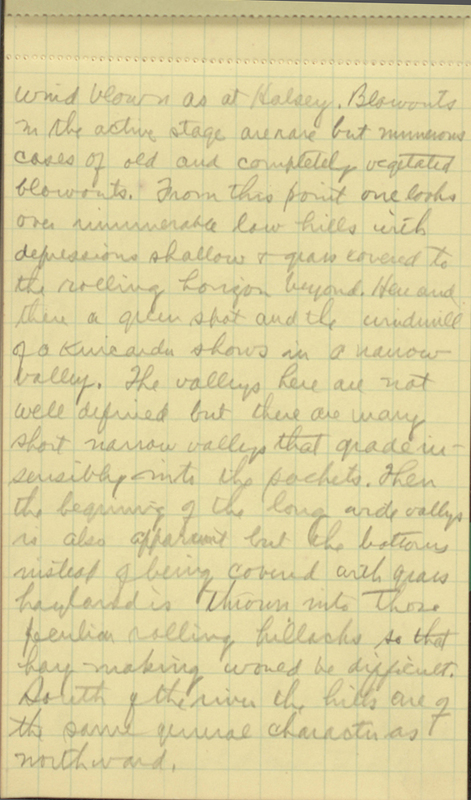 wind blown as at Halsey. Blowouts
in the active stage are rare but numerous
cases of old and completely vegetated
blowouts. From this point one looks
over innumerable low hills with
depressions shallow & grass covered to
the rolling horizon beyond. Here and
there a green spot and the windmill
of a Kincaider shows in a narrow
valley. The valleys here are not
well defined but there are many
short narrow valleys that grade in-
sensibly into the pockets. Then
the beginning of the long wide valleys
is also apparent but the bottoms
instead of being covered with grass
hayland is thrown into those
peculiar rolling hillocks so that
hay-making would be difficult.
South of the river the hills are of
the same general character as
northward.